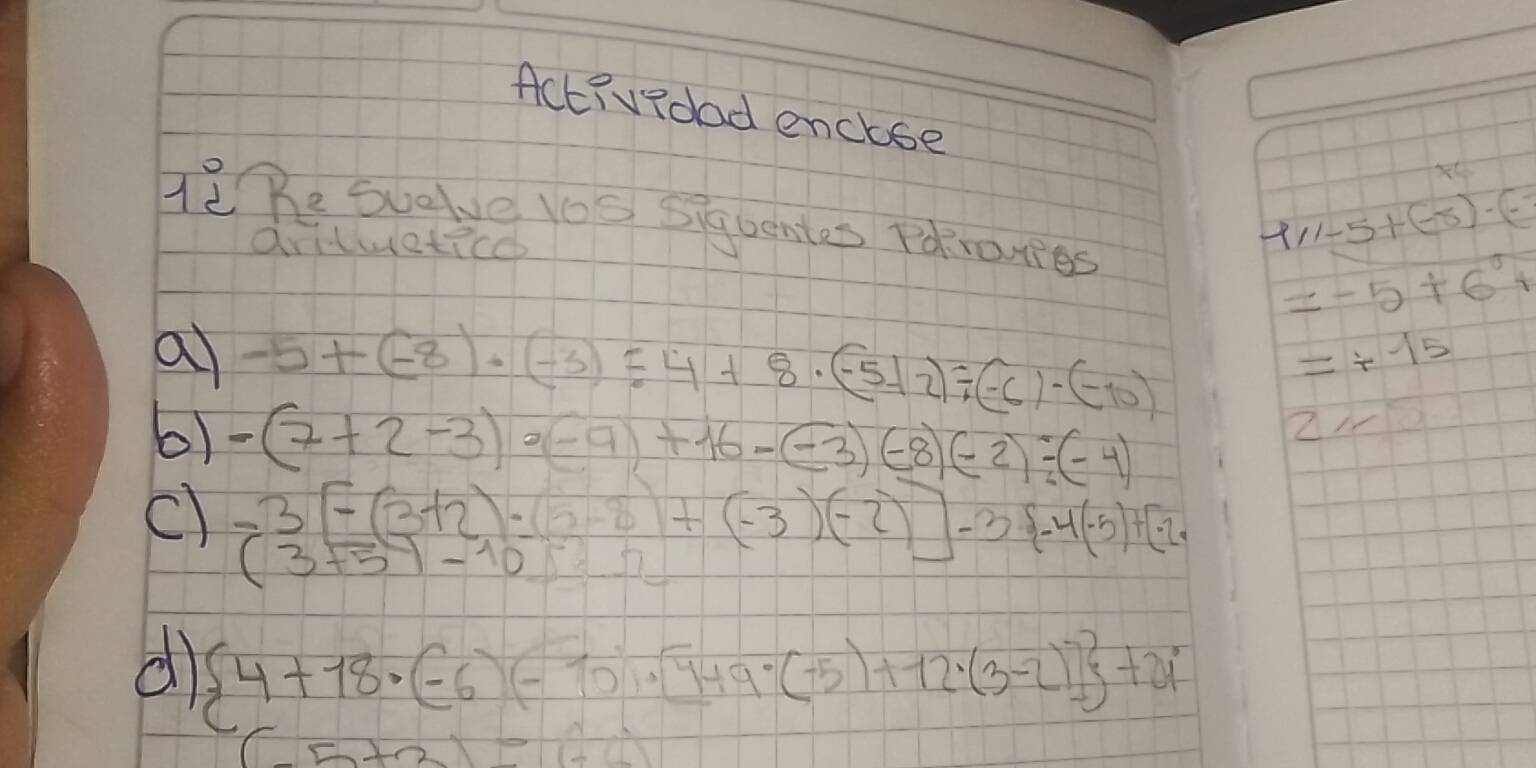 Actividad enclase
1: Resuelve los siguentes
aritmetico
a) -5+(-8)·(-3)÷4+8·(-5+2)÷(-6)-(-10)
b) -(7+2-3)·(-9)+16-(-3)(-8)(-2)÷(-4)
c) -3[-(3+2)-(5-8)+(-3)(-2)]-3{-4(-5)+(-2·
(3+5)-10
d) {4+18·(-6)(-10)·[4+9·(-5)+12·(3-2)]}+24
(-5+3)
4//-5+(-8)·(-3
=-5+6
=+15
2//